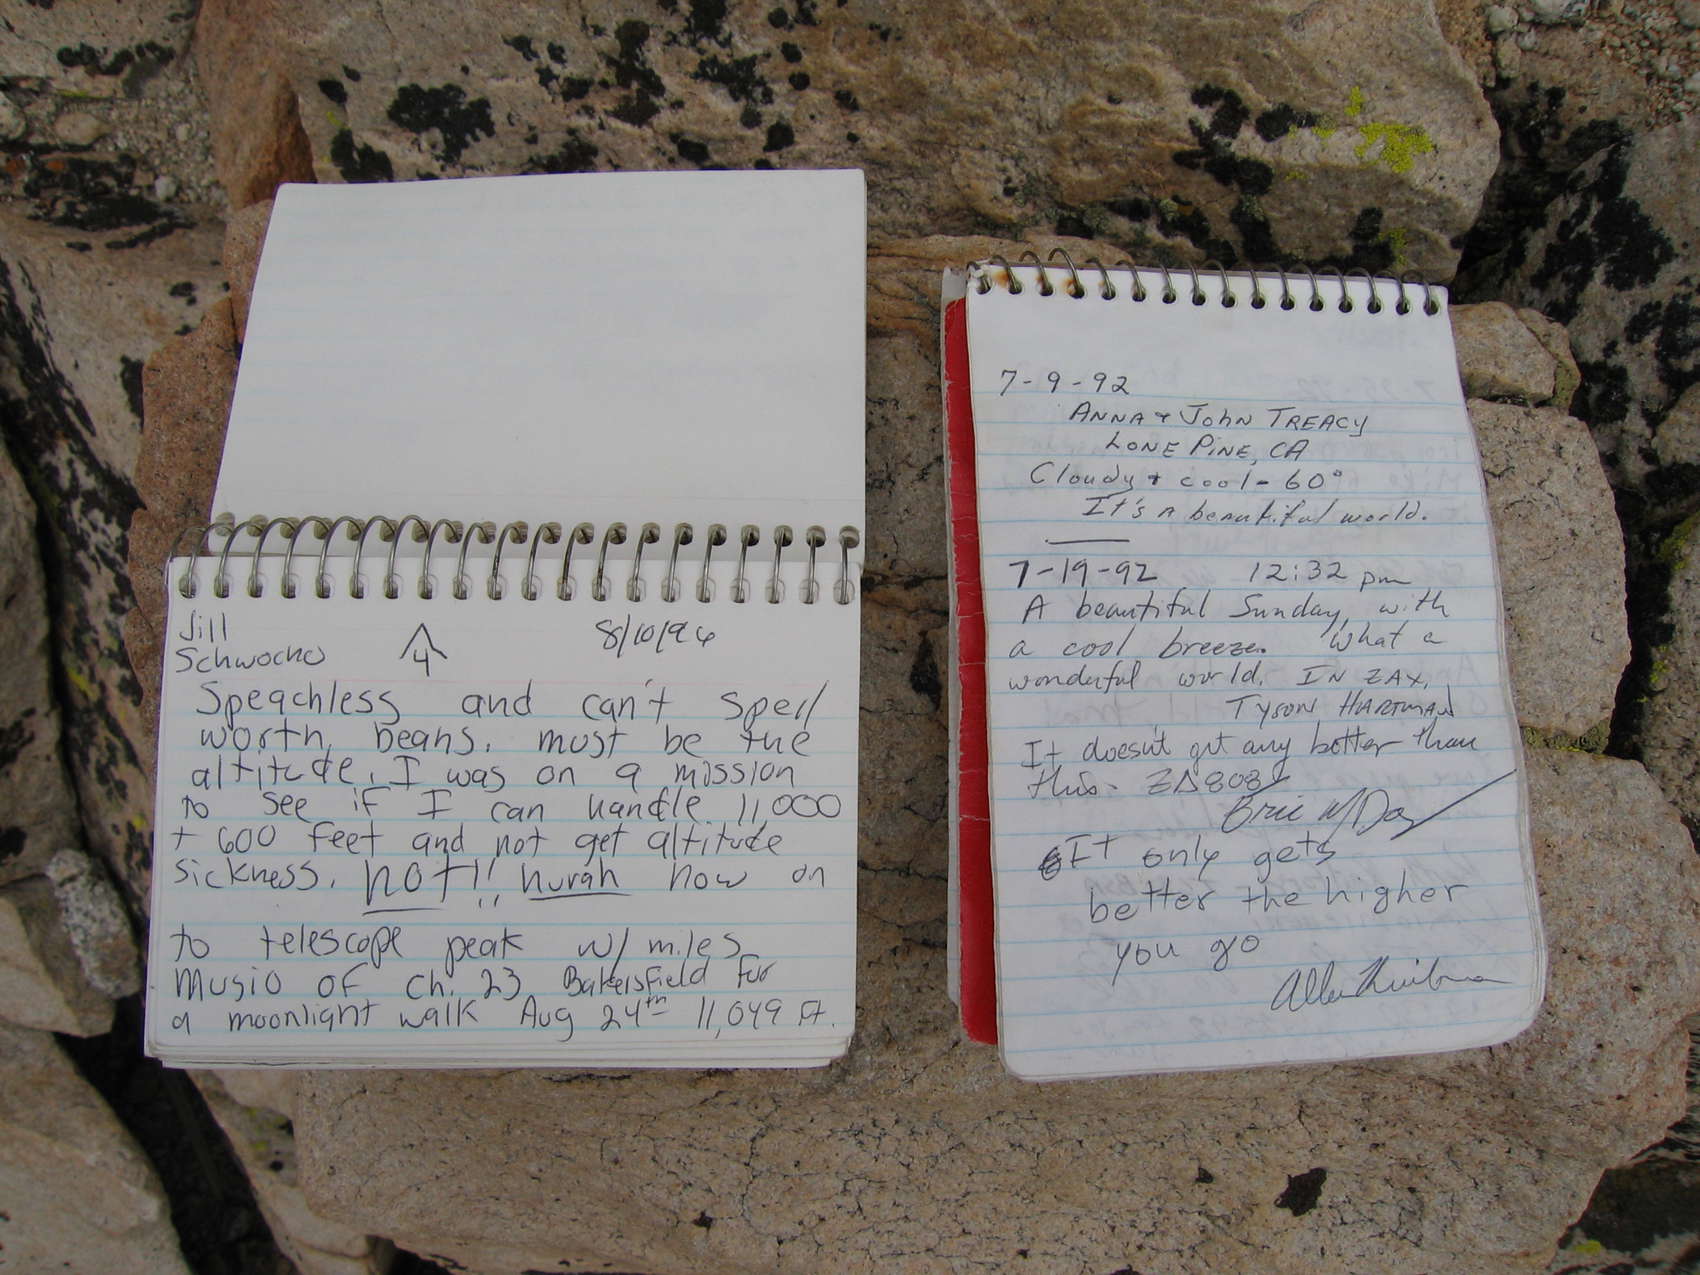 Jill
Schwocho 8/10/96
4
Speachless and can't spell
worth beans. must be the
altitude. I was on a mission
to see if I can handle 11,000
+ 600 feet and not get altitude
sickness. NOT!! hurah now on
to telescope peak w/ miles
Musio of ch. 23 Bakersfield for
a moonlight walk Aug 24th 11,049 ft.
7-9-92
ANNA + JOHN TREACY
LONE PINE, CA
Cloudy + cool - 60°
It's a beautiful world.
7-19-92 12:32 pm
A beautiful Sunday, with
a cool breeze. What a
wonderful world. IN ZAX,
TYSON HARTMAN
It doesn't get any better than
this. ZΔ808
Eric
It only gets
better the higher
you go
Allen